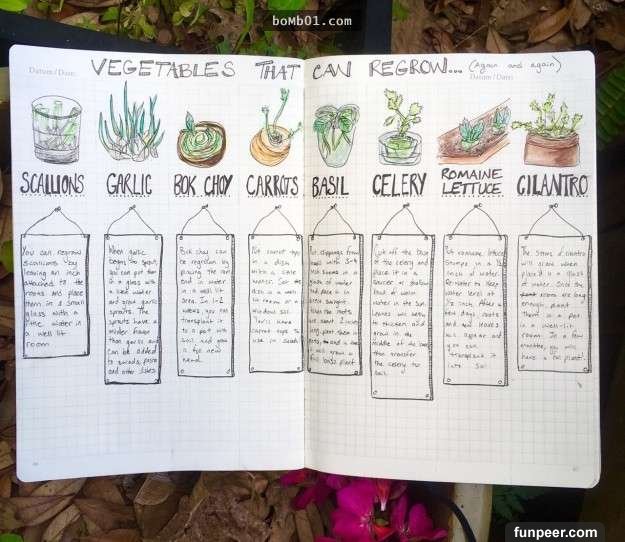 boMb01.com
Datum / Date:
VEGETABLES THAT CAN REGROW... (Again and again)
Datum / Date:
SCALLIONS GARLIC BOK CHOY CARROTS BASIL CELERY ROMAINE LETTUCE CILANTRO
You can regrow
scallions by
leaving an inch
attached to the
roots and place
them in a small
glass with a
little water in
a well lit
room
When garlic
begins to sprout,
you can put them
in a glass with
a little water
and grow garlic
sprouts. The
sprouts have a
milder flavor
than garlic and
can be added
to salads, pasta
and other dishes
Bok choy can
be regrown by
placing the root
end in water
in a well lit
area. In 1-2
weeks you can
transplant it
to a pot with
soil and grow
a full new
head
Put carrot tops
in a dish
with a little
water. Set the
dish in a well
lit room or a
window sill.
You'll have
carrot tops to
use in salads
Put clippings from
basil with 3-4
inch stems in a
glass of water
and place it in
direct sunlight.
When the roots
are about 2 inches
long, plant them in
pots and in time
it will grow a
full basil plant
Cut off the base
of the celery and
place it in a
saucer or shallow
bowl of warm
water in the sun.
Leaves will begin
to thicken and
grow in the
middle of the base
then transfer
the celery to
soil
Put romaine lettuce
stumps in a 1/2
inch of water.
Re-water to keep
water level at
1/2 inch. After a
few days, roots
and new leaves
will appear and
you can
transplant it
into soil
The stems of cilantro
will grow when
placed in a glass
of water. Once the
roots are long
enough, plant
them in a pot
in a well-lit
room. In a few
months, you will
have a full plant!
funpeer.com